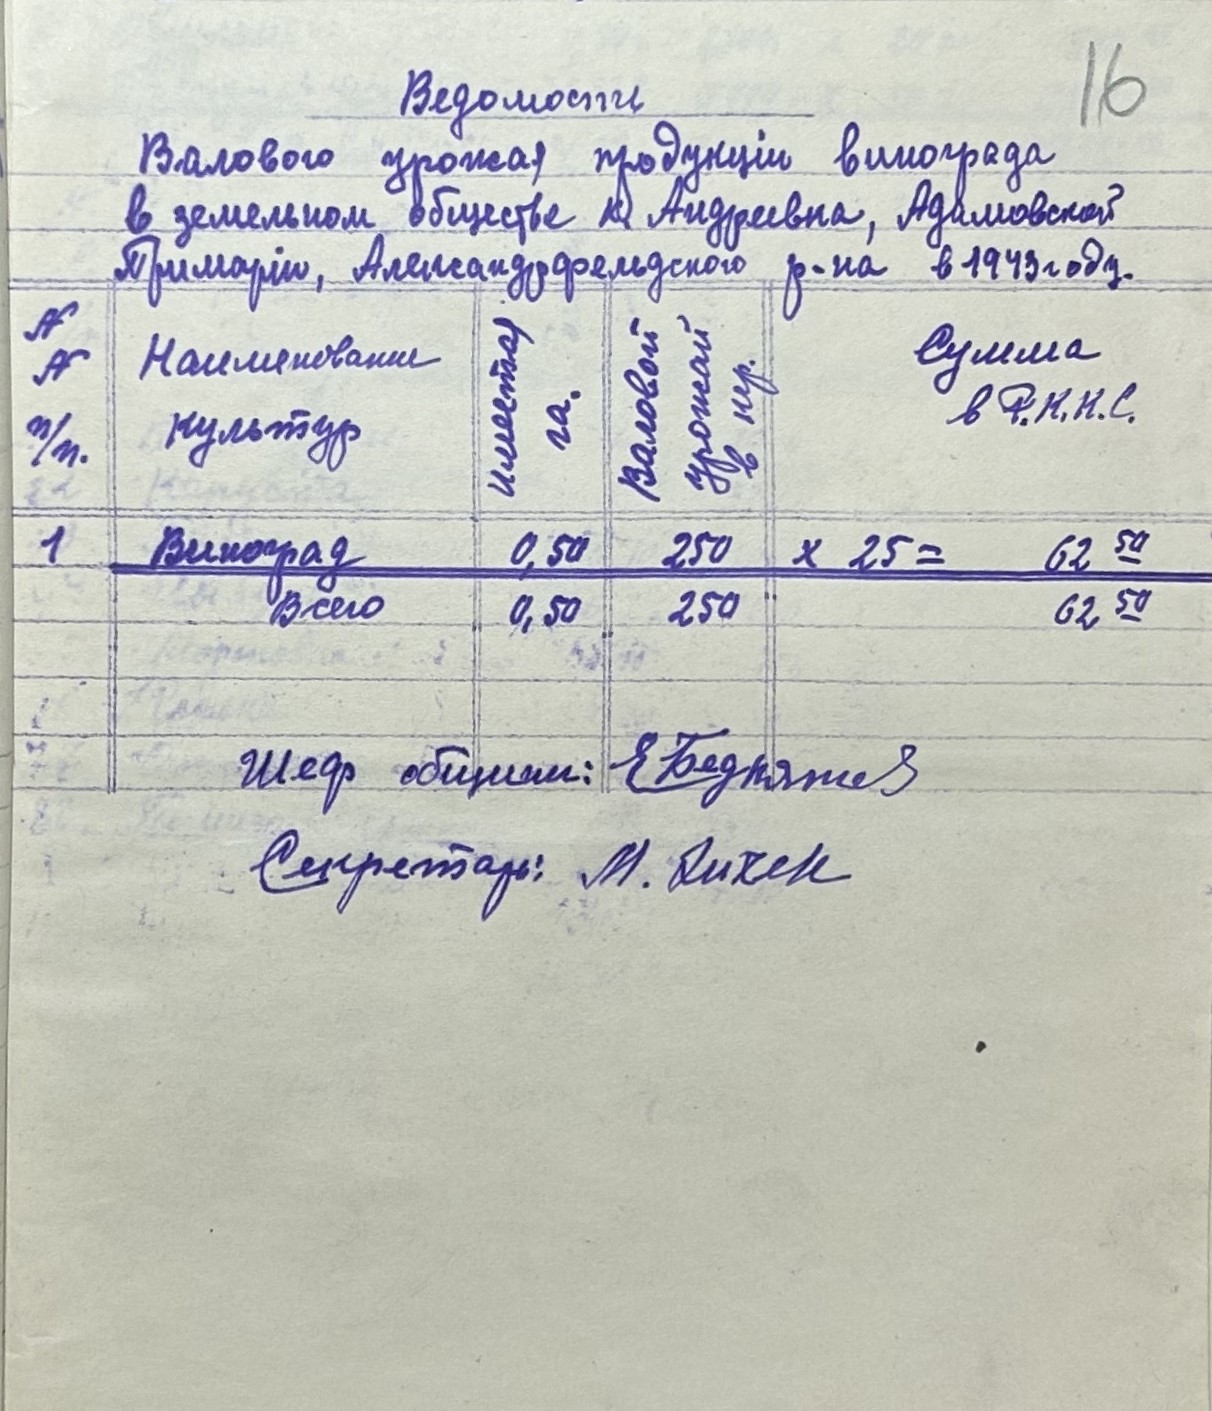 16
Ведомости
Валового урожая продукціи винограда
в земельном обществе к. Андреевна, Адамовской
Примарію, Александрфельдского р-на в 1943 году.
№ № п/п.
Наименование культур
Имеется га.
Валовой урожай в кгр.
Сумма в Р.К.К.С.
1 Виноград 0,50 250 х 25 = 62 50
Всего 0,50 250 62 50
Шеф общин:
Секретарь: М.